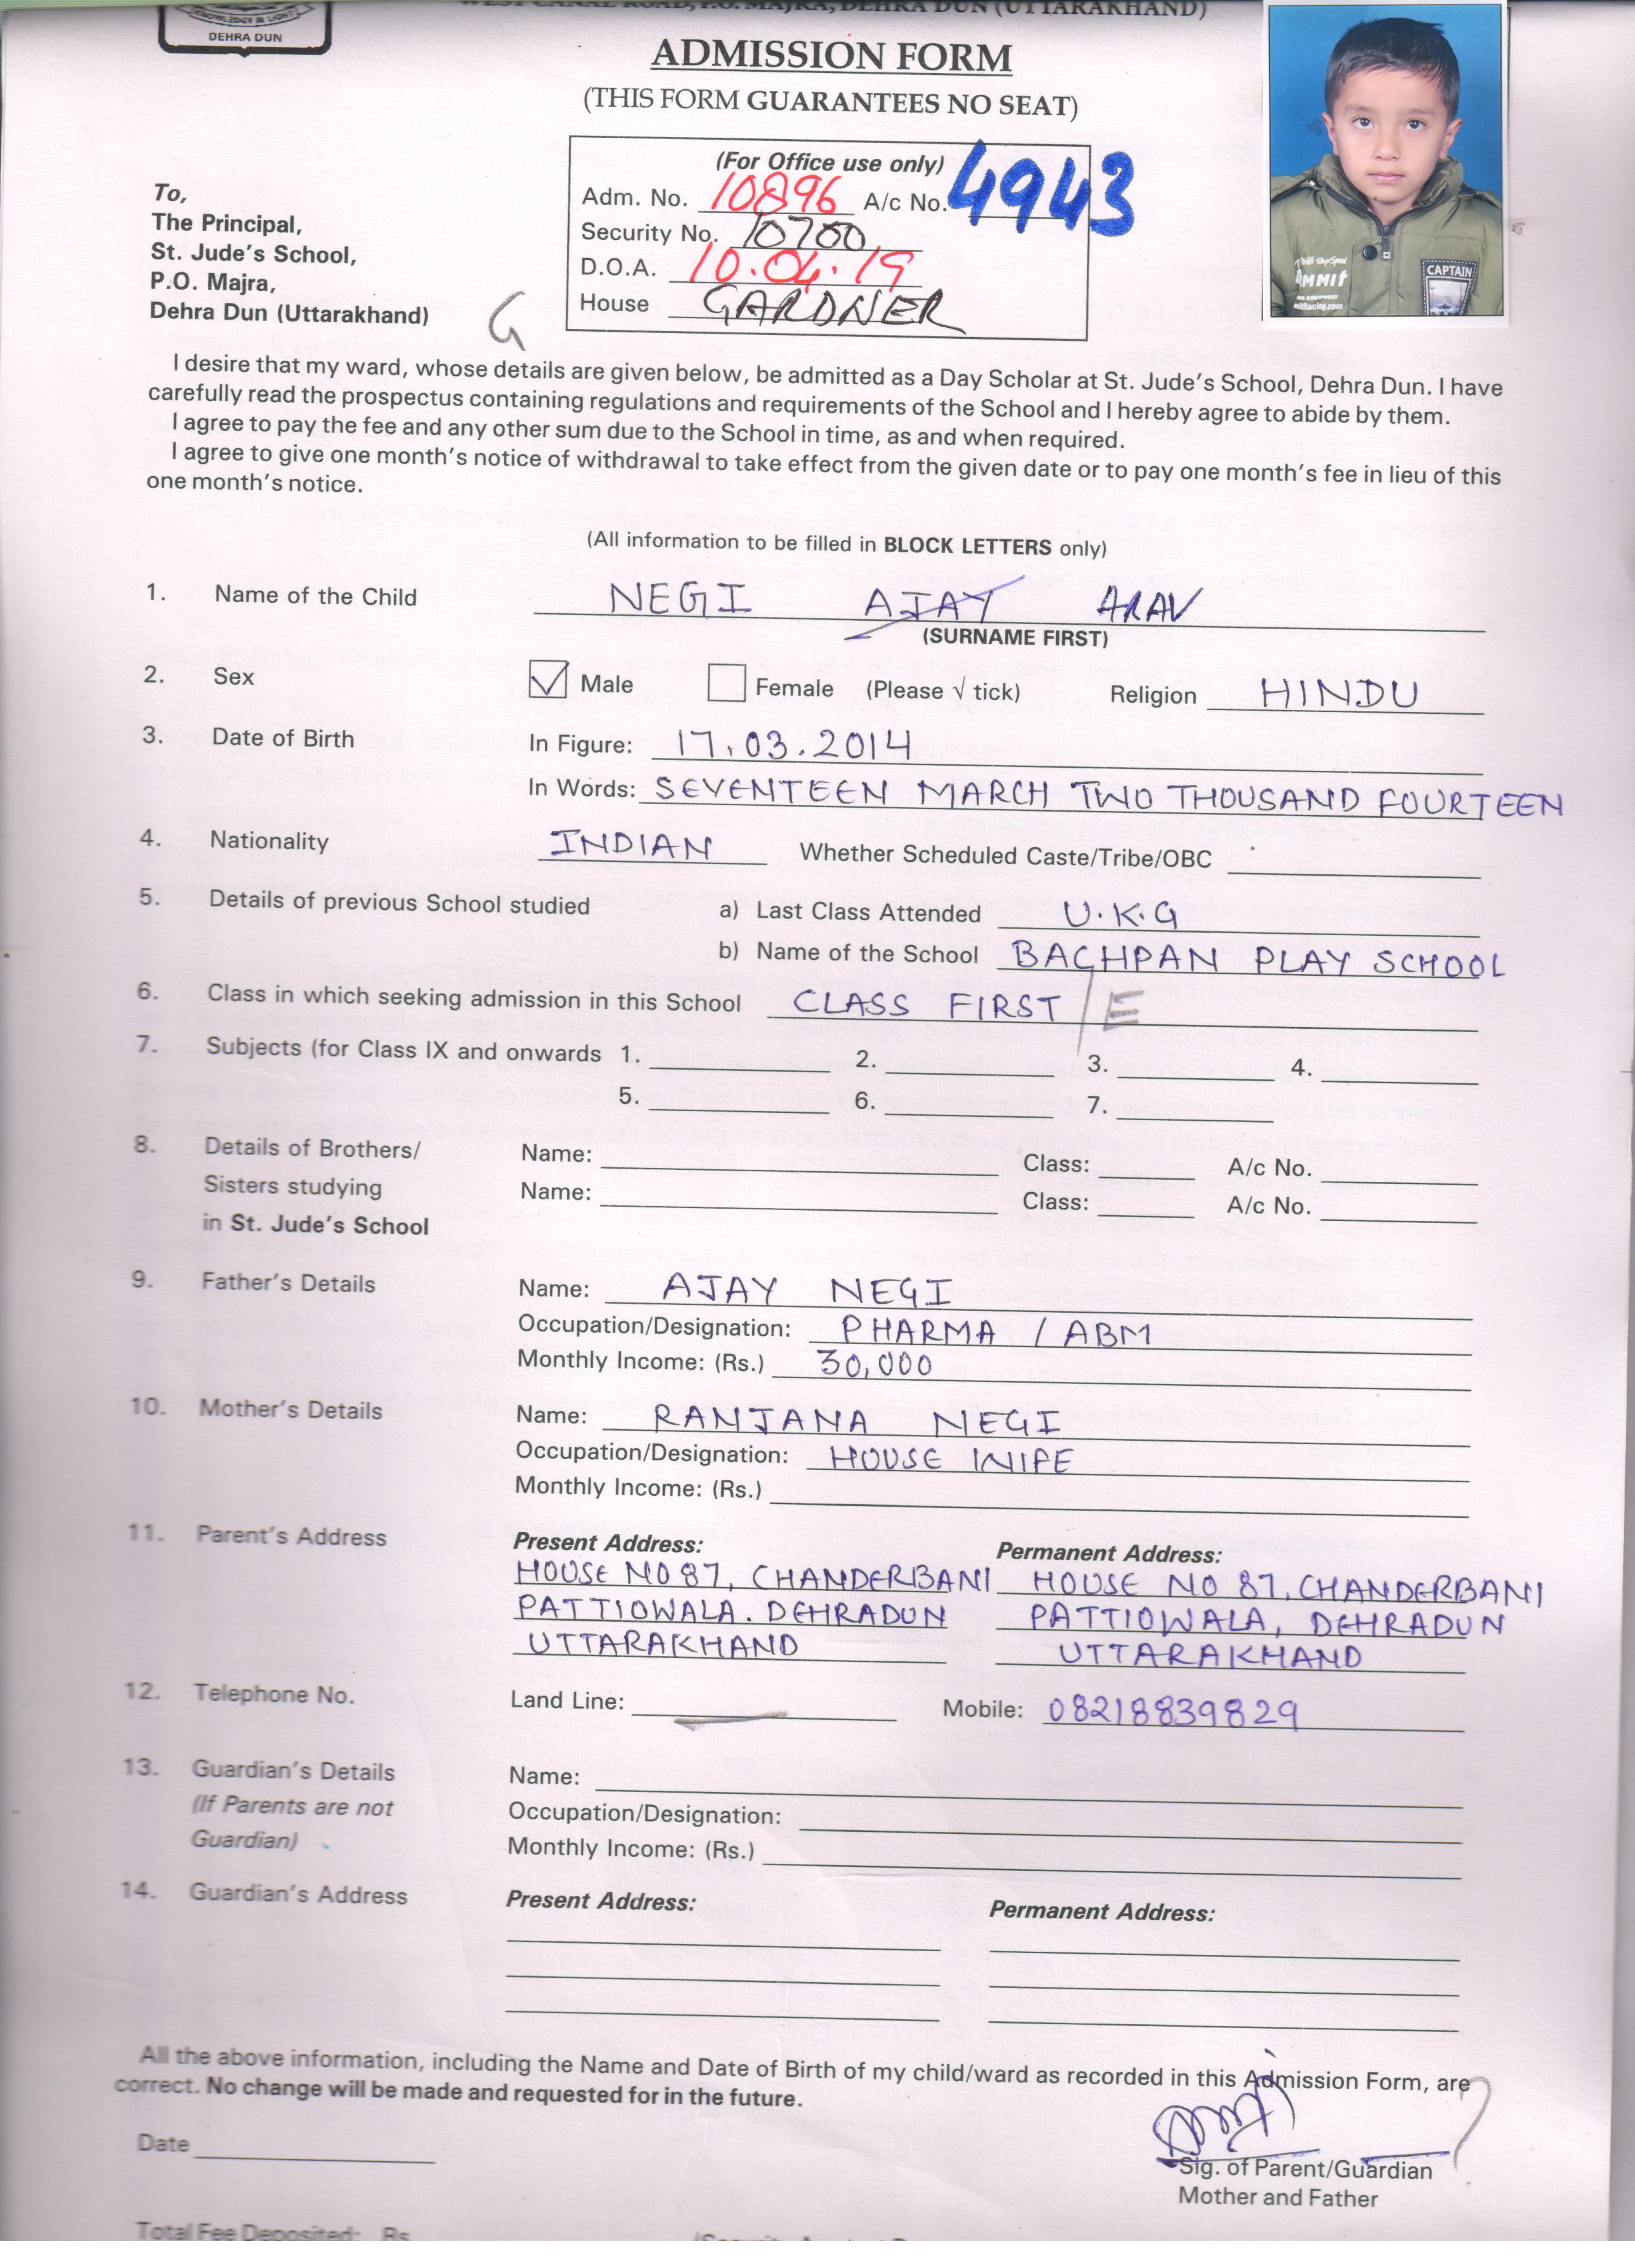 KNOWLEDGE IS LIGHT
DEHRA DUN
WEST CANAL ROAD, P.O. MAJRA, DEHRA DUN (UTTARAKHAND)
ADMISSION FORM
(THIS FORM GUARANTEES NO SEAT)
(For Office use only)
Adm. No. 10896 A/c No. 4943
Security No. 10700
D.O.A. 10.04.19
House GARDNER
To,
The Principal,
St. Jude's School,
P.O. Majra,
Dehra Dun (Uttarakhand)
G
CAPTAIN
I desire that my ward, whose details are given below, be admitted as a Day Scholar at St. Jude's School, Dehra Dun. I have
carefully read the prospectus containing regulations and requirements of the School and I hereby agree to abide by them.
I agree to pay the fee and any other sum due to the School in time, as and when required.
I agree to give one month's notice of withdrawal to take effect from the given date or to pay one month's fee in lieu of this
one month's notice.
(All information to be filled in BLOCK LETTERS only)
1. Name of the Child NEGI AJAY ARAV
(SURNAME FIRST)
2. Sex Male Female (Please √ tick) Religion HINDU
3. Date of Birth In Figure: 17.03.2014
In Words: SEVENTEEN MARCH TWO THOUSAND FOURTEEN
4. Nationality INDIAN Whether Scheduled Caste/Tribe/OBC
5. Details of previous School studied a) Last Class Attended U.K.G
b) Name of the School BACHPAN PLAY SCHOOL
6. Class in which seeking admission in this School CLASS FIRST / E
7. Subjects (for Class IX and onwards 1. 2. 3. 4.
5. 6. 7.
8. Details of Brothers/ Name: Class: A/c No.
Sisters studying Name: Class: A/c No.
in St. Jude's School
9. Father's Details Name: AJAY NEGI
Occupation/Designation: PHARMA / ABM
Monthly Income: (Rs.) 30,000
10. Mother's Details Name: RANJANA NEGI
Occupation/Designation: HOUSE WIFE
Monthly Income: (Rs.)
11. Parent's Address Present Address: Permanent Address:
HOUSE NO 87, CHANDERBANI HOUSE NO 87, CHANDERBANI
PATTIOWALA. DEHRADUN PATTIOWALA, DEHRADUN
UTTARAKHAND UTTARAKHAND
12. Telephone No. Land Line: Mobile: 08218839829
13. Guardian's Details Name:
(If Parents are not Occupation/Designation:
Guardian) Monthly Income: (Rs.)
14. Guardian's Address Present Address: Permanent Address:
All the above information, including the Name and Date of Birth of my child/ward as recorded in this Admission Form, are
correct. No change will be made and requested for in the future.
Date
Sig. of Parent/Guardian
Mother and Father
Total Fee Deposited: Rs